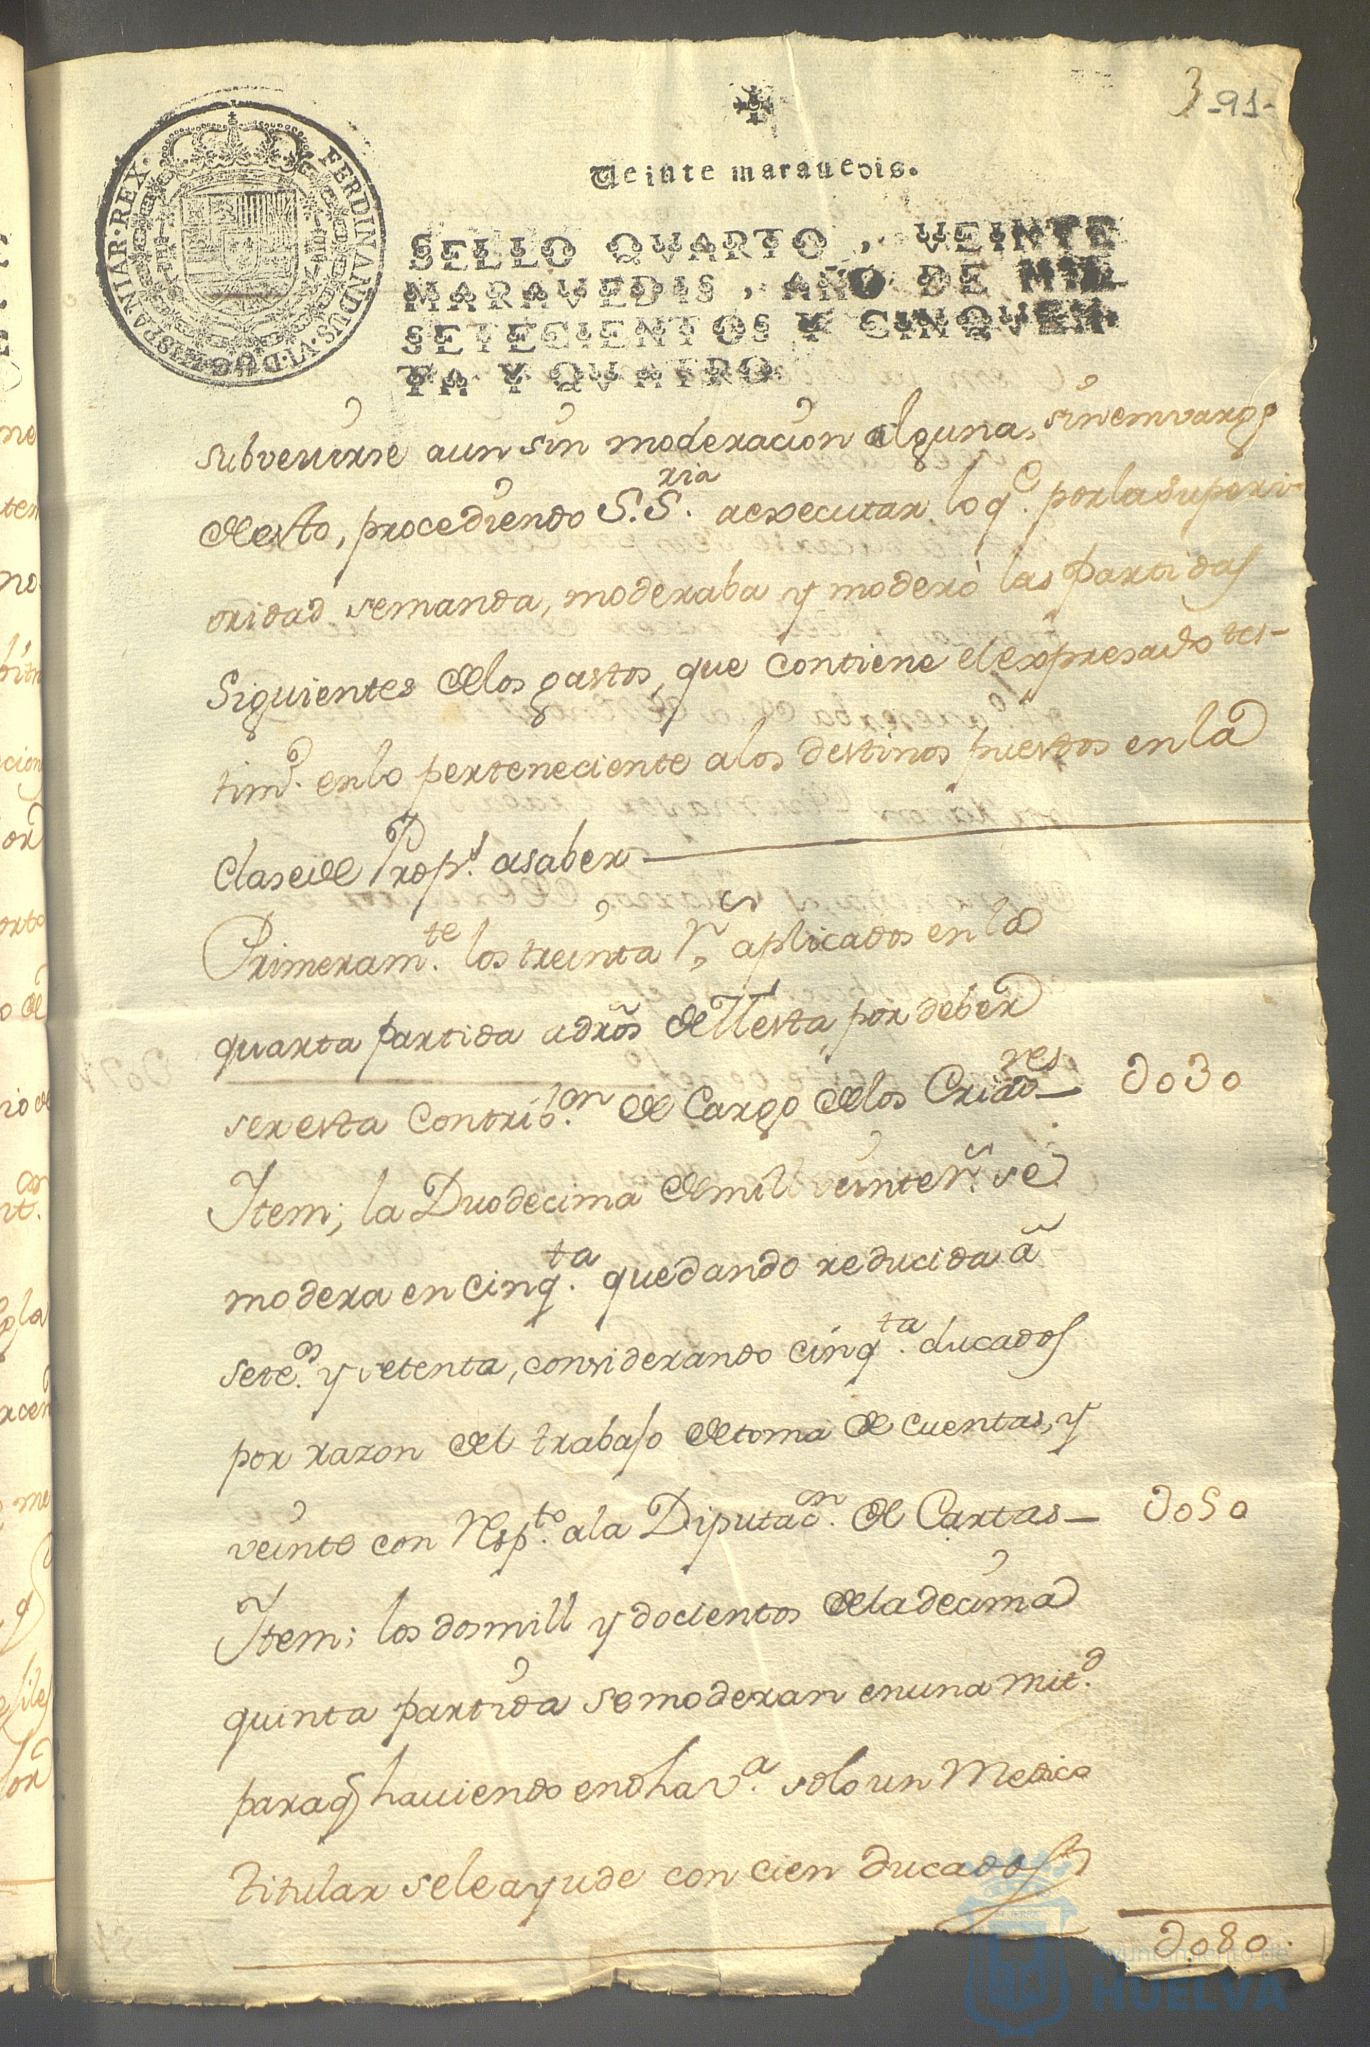 3 -91-
Veinte maravedis.
FERDINANDUS·VI·D·G·HISPANIAR·REX·
SELLO QVARTO, VEINTE
MARAVEDIS, AÑO DE MIL
SETECIENTOS Y CINQVEN
TA Y QVATRO.
subvenirse aun sin moderacion alguna, sinemvargo
de esto, procediendo S.S.ria a executar lo q.e por la superi-
oridad semanda, moderaba y moderó las partidas
Siguientes de los gastos, que contiene el expresado tes-
tim.o en lo perteneciente a los destinos puestos en la
Clase de Prop.s asaber
Primeram.te los treinta r.s aplicados en la
quarta partida a dros de Mesta, por deber
ser esta contrib.on de Cargo de los Criad.res — d030
Item; la Duodecima de mill veinte r.s se
modera en cinq.ta quedando reducida á
sete.s y setenta, considerando cinq.ta ducados
por razon del trabajo de toma de cuentas, y
veinte con resp.to a la Diputac.n de Cartas — d050
Item; los dosmill y docientos de la decima
quinta partida semoderan en una mit.d
paraq haviendo en dha v.a solo un Medico
titular sele ayude con cien ducados
d080.
Ayuntamiento de
HUELVA